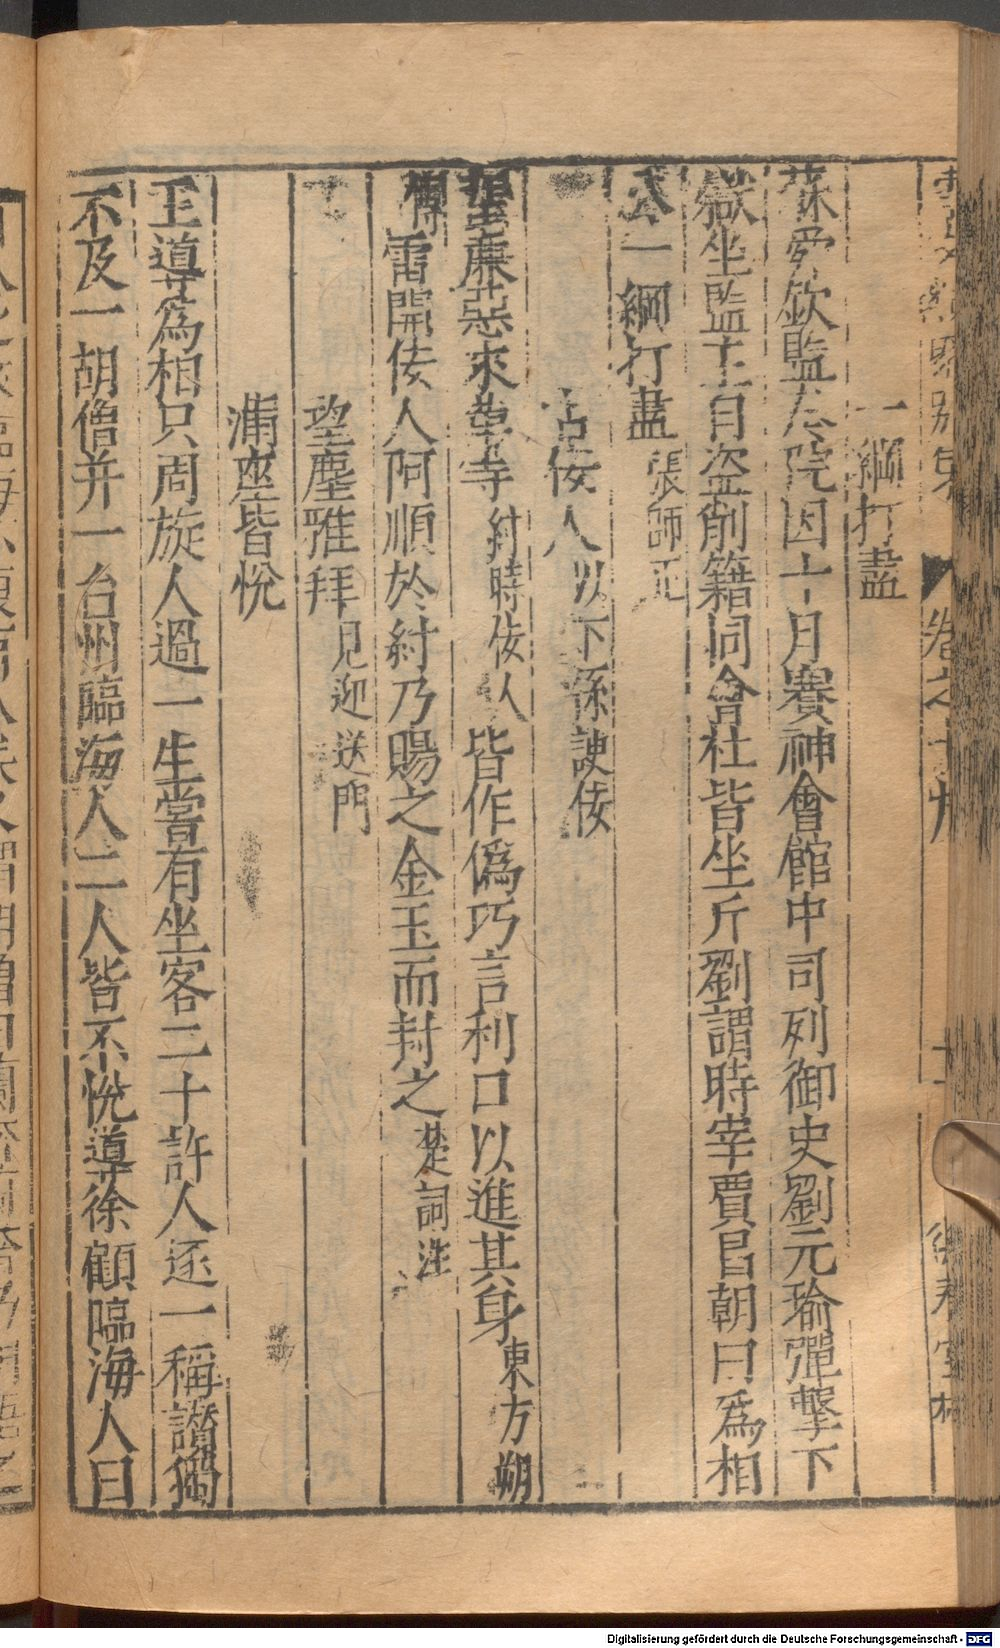 卷之十九
一網打盡
蘇愛欽監&#x2;院因十一月賽神會館中司列御史劉元瑜彈擊下
獄坐監主自盜削籍同會杜皆坐斤劉謂時宰賈昌朝曰爲相
公一網打盡張師正
古佞人以下係諛佞
蜚廉惡來革等紂時佞人皆作僞巧言利口以進其身東方朔
傳雷開佞人阿順於紂乃賜之金玉而封之楚詞注
望塵雅拜見迎送門
滿座皆悅
王導爲相只周旋人過一生嘗有坐客二十許人逐一稱讃獨
不及一胡僧并一台州臨海人二人皆不悅導徐顧臨海人曰
Digitalisierung gefördert durch die Deutsche Forschungsgemeinschaft - DFG